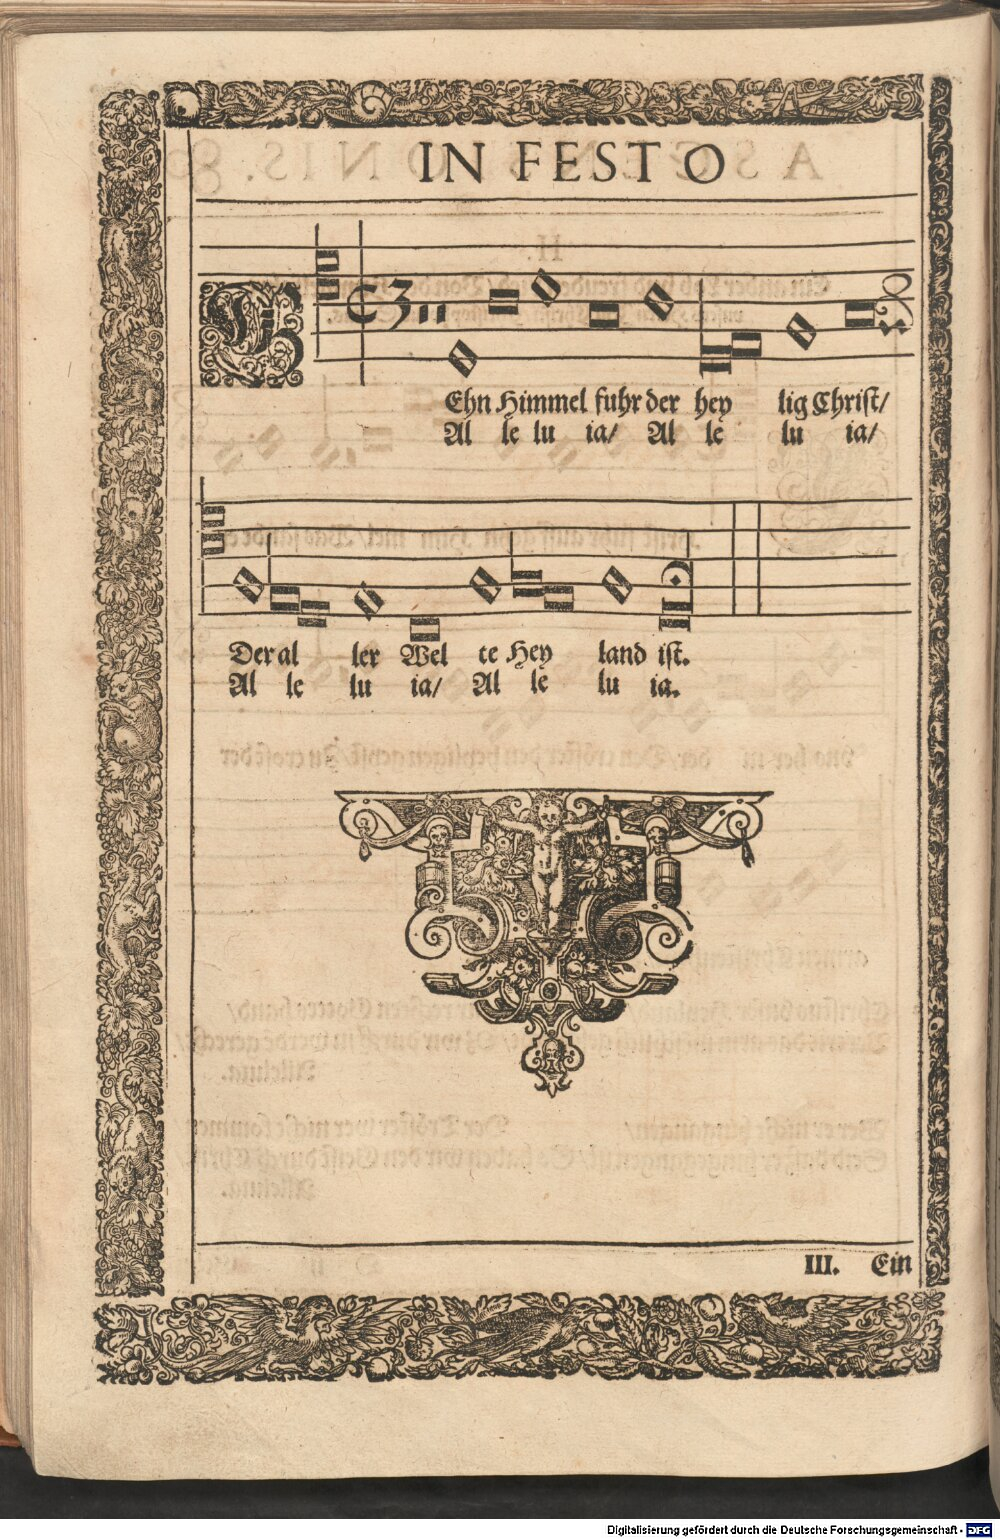 IN FESTO
GEhn Himmel fuhr der hey lig Christ/
Al le lu ia/ Al le lu ia/
Der al ler Wel te Hey land ist.
Al le lu ia/ Al le lu ia.
III. Ein
Digitalisierung gefördert durch die Deutsche Forschungsgemeinschaft - DFG